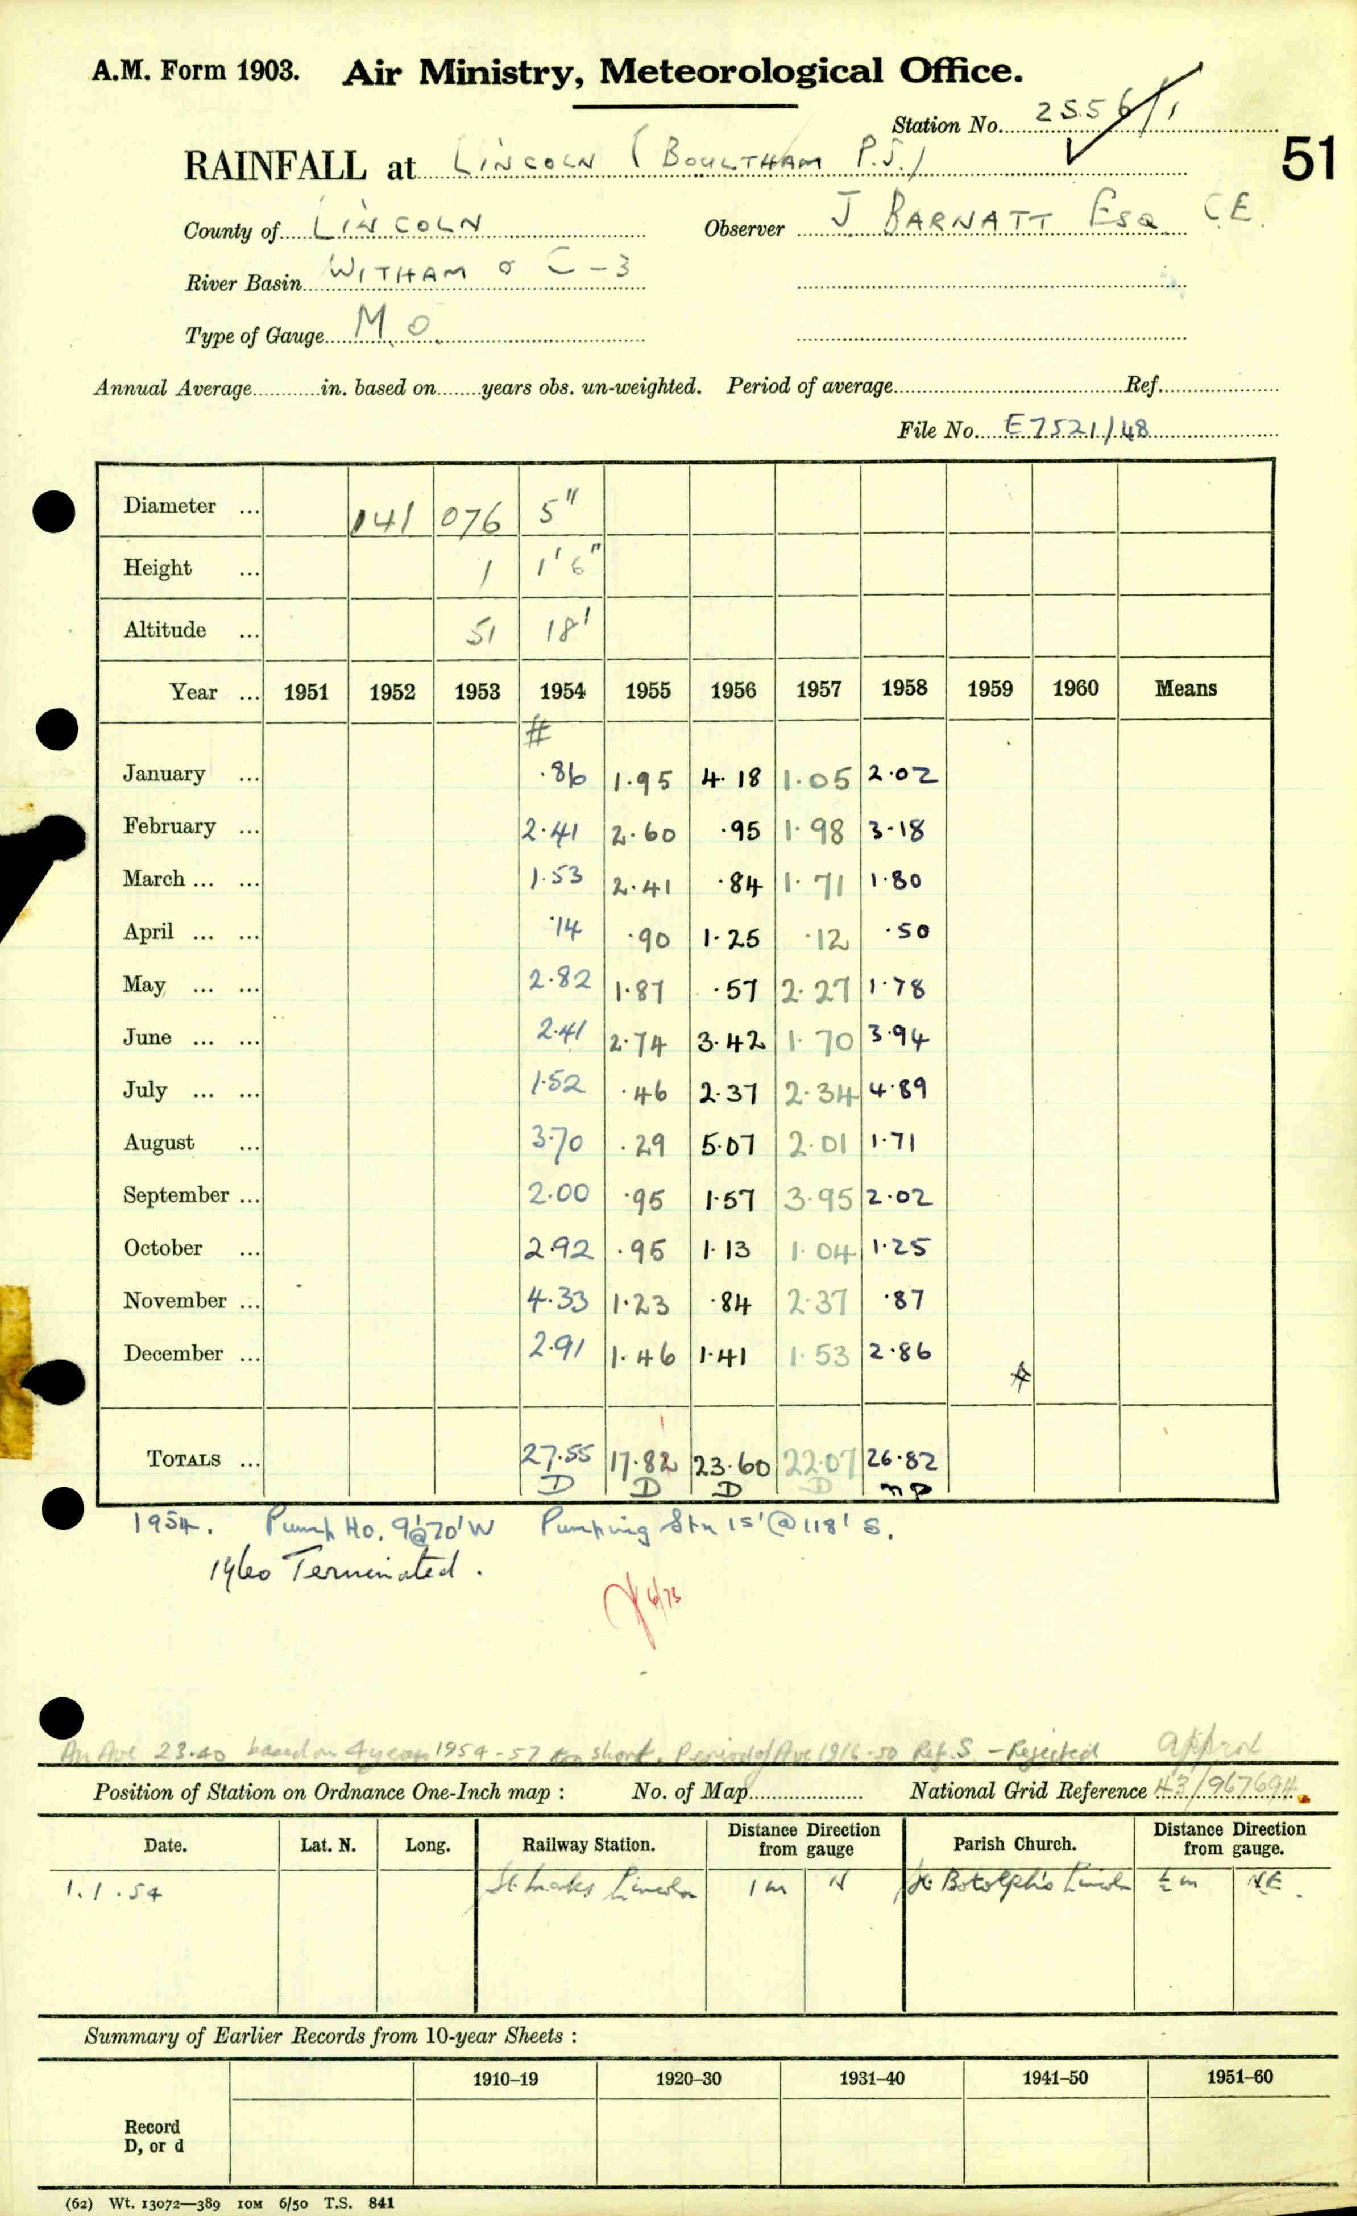 A.M. Form 1903. Air Ministry, Meteorological Office.
Station No. 2556/1
51
RAINFALL at LINCOLN (BOULTHAM P.S.)
County of LINCOLN Observer J BARNATT ESQ C.E.
River Basin WITHAM C-3
Type of Gauge M.O.
Annual Average............in. based on........years obs. un-weighted. Period of average............Ref............
File No. E7521/48
Diameter ... 141 076 5"
Height ... 1 1'6"
Altitude ... 51 18'
Year ... 1951 1952 1953 1954 1955 1956 1957 1958 1959 1960 Means
#
January ... .86 1.95 4.18 1.05 2.02
February ... 2.41 2.60 .95 1.98 3.18
March ... ... 1.53 2.41 .84 1.71 1.80
April ... ... .14 .90 1.25 .12 .50
May ... ... 2.82 1.87 .57 2.27 1.78
June ... ... 2.41 2.74 3.42 1.70 3.94
July ... ... 1.52 .46 2.37 2.34 4.89
August ... 3.70 .29 5.07 2.01 1.71
September ... 2.00 .95 1.57 3.95 2.02
October ... 2.92 .95 1.13 1.04 1.25
November ... 4.33 1.23 .84 2.37 .87
December ... 2.91 1.46 1.41 1.53 2.86
#
TOTALS ... 27.55 17.82 23.60 22.07 26.82
D D D D
1954. Pump Ho. 9'@70'W Pumping Stn 15'@118' S.
1960 Terminated.
6/73
An Ave 23.40 based on 4 years 1954-57 too short. Period of Ave 1916-50 Ref. S - Rejected
approx
Position of Station on Ordnance One-Inch map : No. of Map............ National Grid Reference 43/967694
Date. Lat. N. Long. Railway Station. Distance Direction from gauge Parish Church. Distance Direction from gauge.
1.1.54 St. Marks Lincoln 1 m N St Botolph's Lincoln ½ m NE.
Summary of Earlier Records from 10-year Sheets :
1910–19 1920–30 1931–40 1941–50 1951–60
Record
D, or d
(62) Wt. 13072—389 10M 6/50 T.S. 841